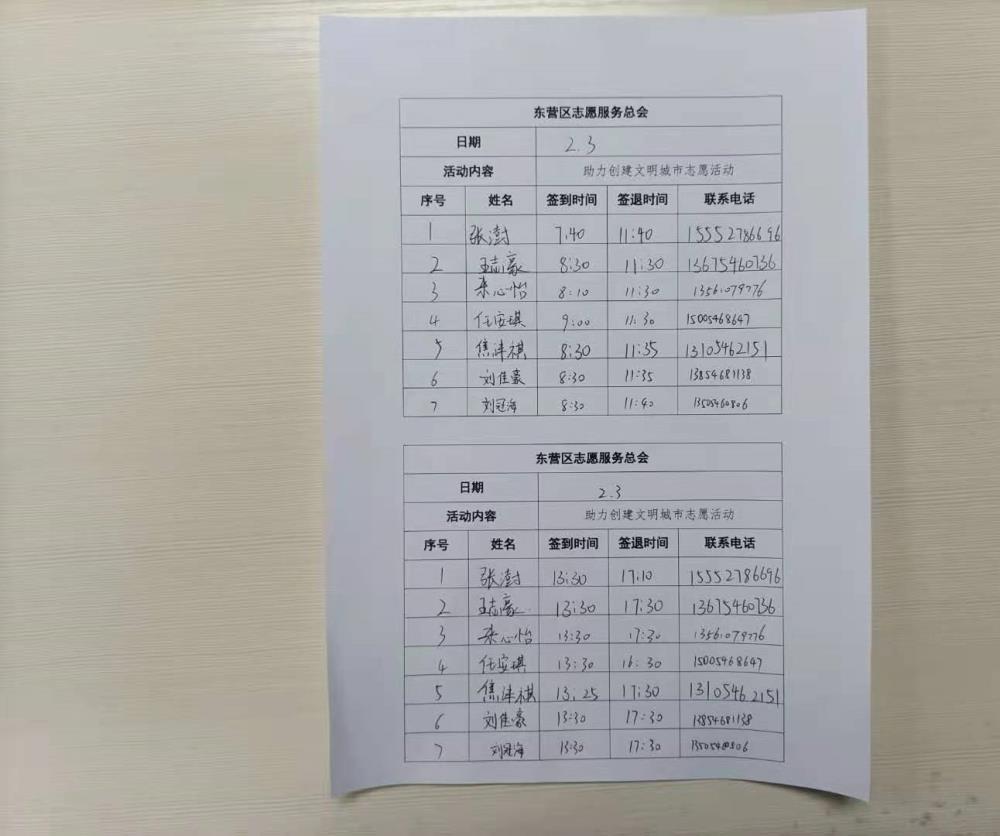 东营区志愿服务总会
日期 2.3
活动内容 助力创建文明城市志愿活动
序号 姓名 签到时间 签退时间 联系电话
1 张澍 7:40 11:40 15552786696
2 王志豪 8:30 11:30 13675460736
3 栾心怡 8:10 11:30 13561079776
4 任安琪 9:00 11:30 15005468647
5 焦沣祺 8:30 11:35 13105462151
6 刘佳豪 8:30 11:35 13854681138
7 刘冠海 8:30 11:40 13505460806
东营区志愿服务总会
日期 2.3
活动内容 助力创建文明城市志愿活动
序号 姓名 签到时间 签退时间 联系电话
1 张澍 13:30 17:10 15552786696
2 王志豪 13:30 17:30 13675460736
3 栾心怡 13:30 17:30 13561079776
4 任安琪 13:30 16:30 15005468647
5 焦沣祺 13:25 17:30 13105462151
6 刘佳豪 13:30 17:30 13854681138
7 刘冠海 13:30 17:30